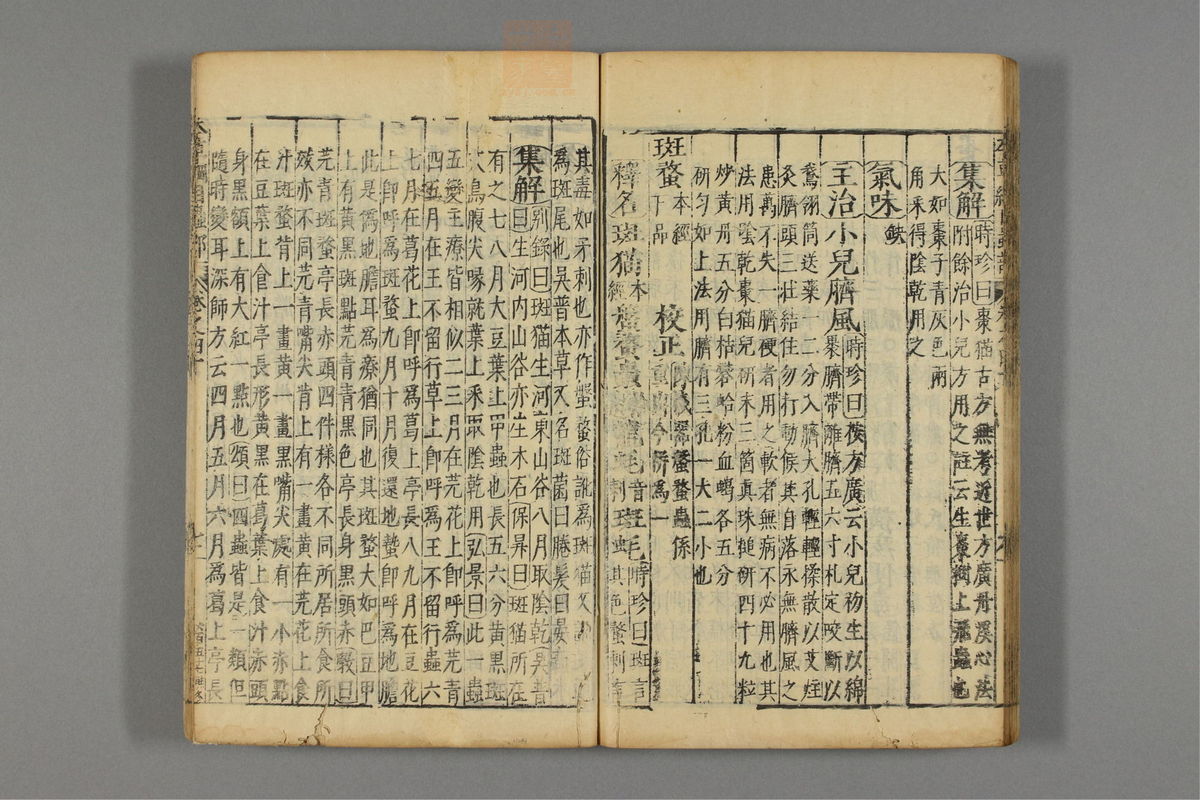 集解時珍曰棗猫古方無考近世方廣丹溪心法
附餘治小兒方用之註云生棗樹上飛蟲也
大如棗子青灰色兩
角采得陰乾用之
氣味缺
主治小兒臍風時珍曰按方廣云小兒初生以綿
裹臍帶離臍五六寸扎定咬斷以
鵞翎筒送藥一二分入臍大孔輕輕揉散以艾炷
灸臍頭三壯結住勿打動候其自落永無臍風之
患萬不失一臍硬者用之軟者無病不必用也其
法用陰乾棗猫兒研末三箇真珠搥研四十九粒
炒黃丹五分白枯礬蛤粉血蝎各五分
研勻如上法用臍有三孔一大二小也
斑蝥本經下品 校正蝥蟲係今併為一
釋名斑猫本經 斑蚝時珍曰斑言其色蝥刺言
其毒如矛刺也亦作螌蝥俗訛為斑猫又
為斑尾也吳普本草又名斑菌曰腃髮曰晏
集解别錄曰斑猫生河東山谷八月取陰乾吳普
曰生河内山谷亦生木石保昇曰斑猫所在
有之七八月大豆葉上甲蟲也長五六分黃黑斑
文烏腹尖喙就葉上采取陰乾用弘景曰此一蟲
五變主療皆相似二三月在芫花上卽呼為芫青
四五月在王不留行草上卽呼為王不留行蟲六
七月在葛花上卽呼為葛上亭長八九月在豆花
上卽呼為斑蝥九月十月復還地蟄卽呼為地膽
此是偽地膽耳為療猶同也其斑蝥大如巴豆甲
上有黃黑斑點芫青青黑色亭長身黑頭赤斅曰
芫青斑蝥亭長赤頭四件様各不同所居所食所
效亦不同芫青嘴尖背上有一畫黃在芫花上食
汁斑蝥背上一畫黃一畫黑嘴尖處有一小赤點
在豆葉上食汁亭長形黃黑在葛葉上食汁赤頭
身黑額上有大紅一點也頌曰四蟲皆是一類但
隨時變耳深師方云四月五月六月為葛上亭長